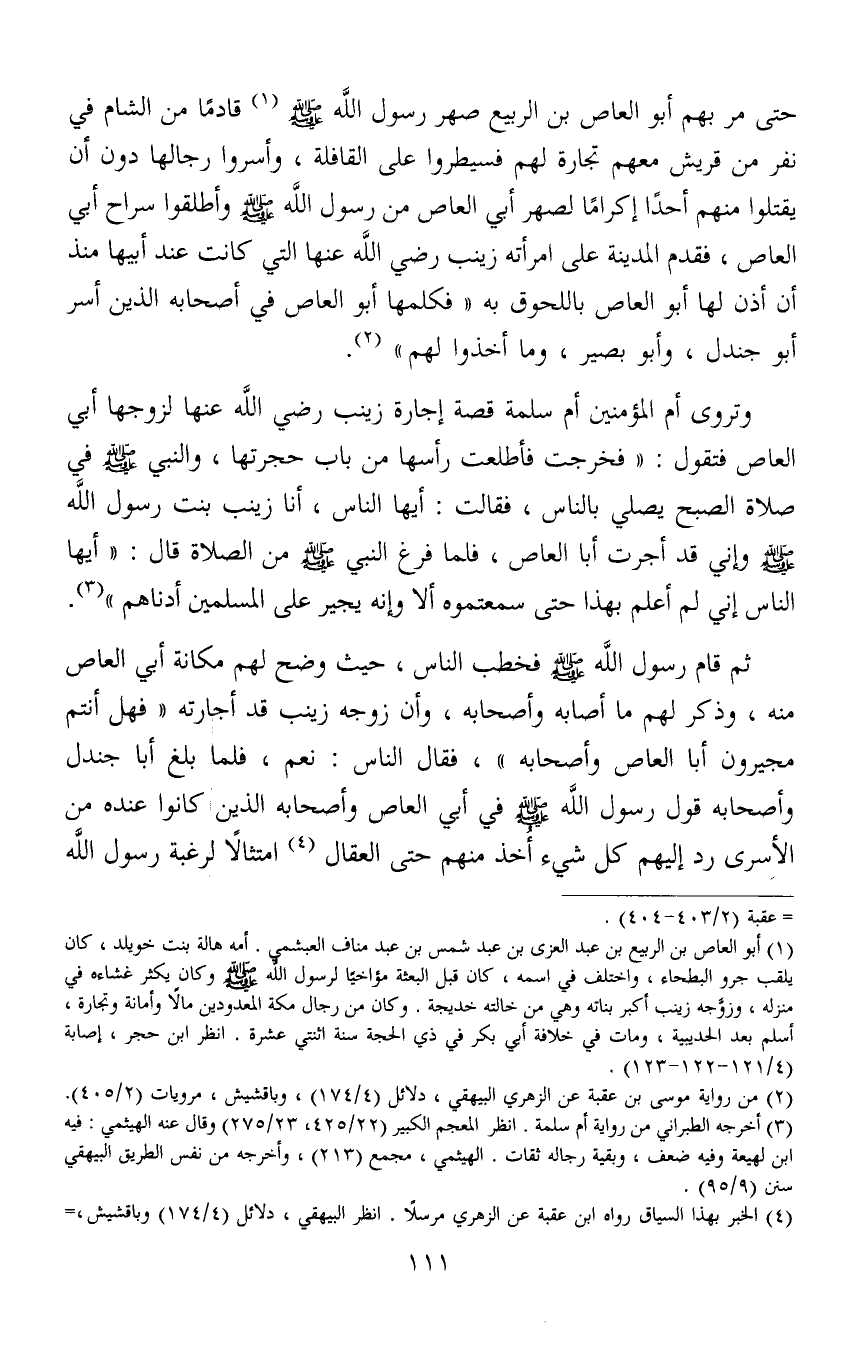 حتى مر بهم أبو العاص بن الربيع صهر رسول اللَّه ﷺ (١) قادمًا من الشام في
نفر من قريش معهم تجارة لهم فسيطروا على القافلة ، وأسروا رجالها دون أن
يقتلوا منهم أحدًا إكرامًا لصهر أبي العاص من رسول اللَّه ﷺ وأطلقوا سراح أبي
العاص ، فقدم المدينة على امرأته زينب رضي اللَّه عنها التي كانت عند أبيها منذ
أن أذن لها أبو العاص باللحوق به « فكلمها أبو العاص في أصحابه الذين أسر
أبو جندل ، وأبو بصير ، وما أخذوا لهم» (٢).
وتروى أم المؤمنين أم سلمة قصة إجارة زينب رضي اللَّه عنها لزوجها أبي
العاص فتقول : « فخرجت فأطلعت رأسها من باب حجرتها ، والنبي ﷺ في
صلاة الصبح يصلي بالناس ، فقالت : أيها الناس ، أنا زينب بنت رسول اللَّه
ﷺ وإني قد أجرت أبا العاص ، فلما فرغ النبي ﷺ من الصلاة قال : « أيها
الناس إني لم أعلم بهذا حتى سمعتموه ألا وإنه يجير على المسلمين أدناهم »(٣).
ثم قام رسول اللَّه ﷺ فخطب الناس ، حيث وضح لهم مكانة أبي العاص
منه ، وذكر لهم ما أصابه وأصحابه ، وأن زوجه زينب قد أجارته « فهل أنتم
مجيرون أبا العاص وأصحابه » ، فقال الناس : نعم ، فلما بلغ أبا جندل
وأصحابه قول رسول اللَّه ﷺ في أبي العاص وأصحابه الذين كانوا عنده من
الأسرى رد إليهم كل شيء أُخذ منهم حتى العقال (٤) امتثالًا لرغبة رسول اللَّه
= عقبة (٤٠٣/٢-٤٠٤) .
(١) أبو العاص بن الربيع بن عبد العزى بن عبد شمس بن عبد مناف العبشمي . أمه هالة بنت خويلد ، كان
يلقب جرو البطحاء ، واختلف في اسمه ، كان قبل البعثة مؤاخيًا لرسول اللَّه ﷺ وكان يكثر غشاءه في
منزله ، وزوَّجه زينب أكبر بناته وهي من خالته خديجة . وكان من رجال مكة المعدودين مالًا وأمانة وتجارة ،
أسلم بعد الحديبية ، ومات في خلافة أبي بكر في ذي الحجة سنة اثنتي عشرة . انظر ابن حجر ، إصابة
(١٢١/٤-١٢٢-١٢٣) .
(٢) من رواية موسى بن عقبة عن الزهري البيهقي ، دلائل (١٧٤/٤) ، وباقشيش ، مرويات (٤٠٥/٢).
(٣) أخرجه الطبراني من رواية أم سلمة . انظر المعجم الكبير (٤٢٥/٢٢، ٢٧٥/٢٣) وقال عنه الهيثمي : فيه
ابن لهيعة وفيه ضعف ، وبقية رجاله ثقات . الهيثمي ، مجمع (٢١٣) ، وأخرجه من نفس الطريق البيهقي
سنن (٩٥/٩) .
(٤) الخبر بهذا السياق رواه ابن عقبة عن الزهري مرسلًا . انظر البيهقي ، دلائل (١٧٤/٤) وباقشيش ،=
١١١